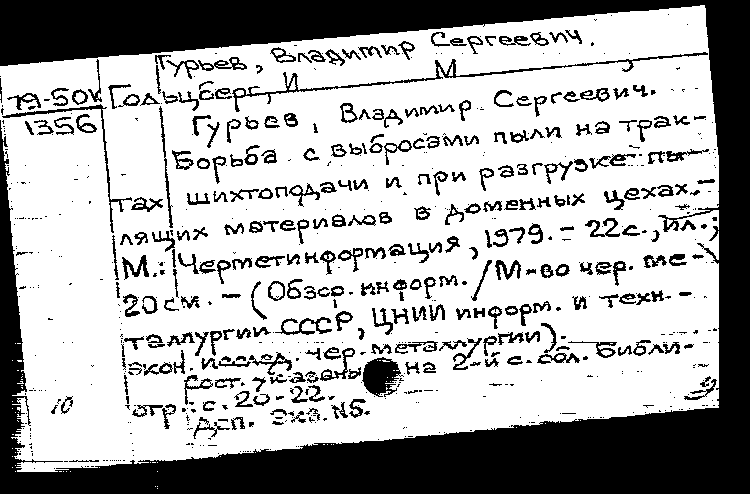 Гурьев, Владимир Сергеевич.
79-50к Гольцберг, И М ,
1356 Гурьев, Владимир Сергеевич.
Борьба с выбросами пыли на трак-
тах шихтоподачи и при разгрузке пы-
лящих материалов в доменных цехах.-
М.: Черметинформация, 1979. - 22с., ил.;
20см. - (Обзор. информ. / М-во чер. ме-
таллургии СССР, ЦНИИ информ. и техн.-
экон. исслед. чер. металлургии).
Сост. указаны на 2-й с. обл. Библи-
огр.: с. 20-22.
10 ДСП. Экз. N5.